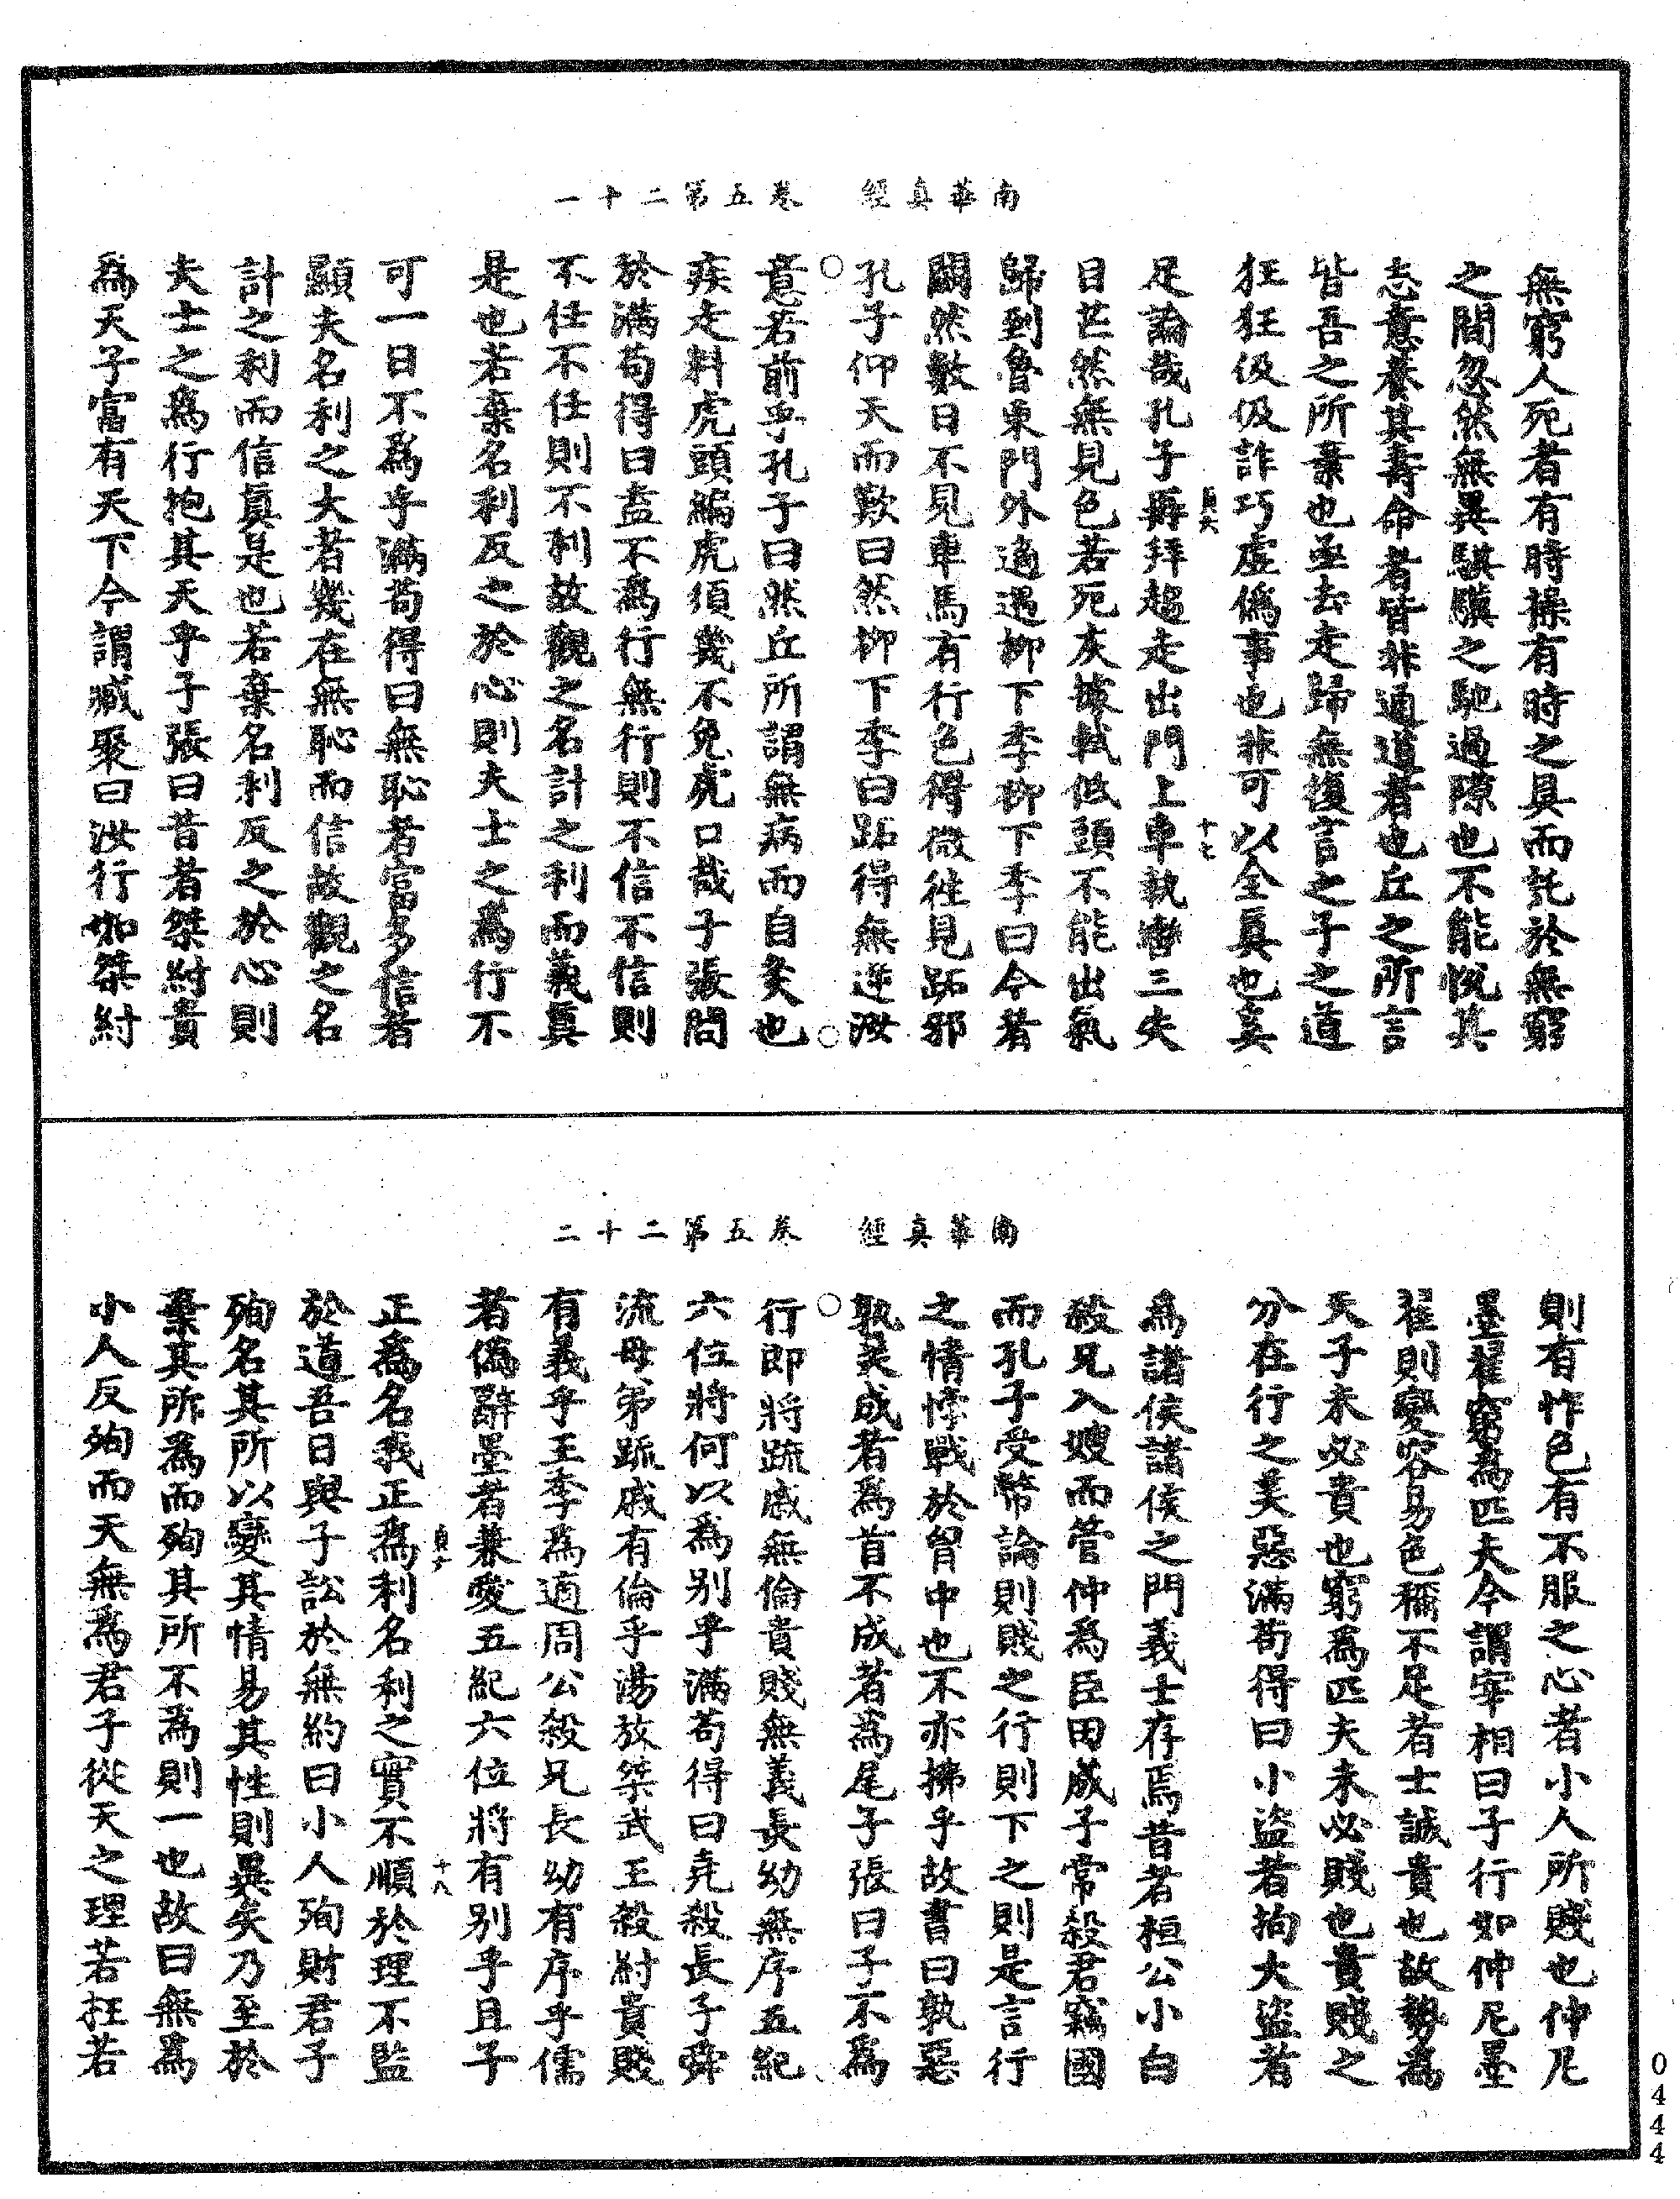 南華真經　卷五第二十一
無窮人死者有時操有時之具而託於無窮
之間忽然無異騏驥之馳過隙也不能悅其
志意養其壽命者皆非通道者也丘之所言
皆吾之所棄也亟去走歸無復言之子之道
狂狂伋伋詐巧虛偽事也非可以全真也奚
足論哉孔子再拜趨走出門上車執轡三失
目芒然無見色若死灰據軾低頭不能出氣
歸到魯東門外適遇柳下季柳下季曰今者
闕然數日不見車馬有行色得微往見跖邪
孔子仰天而歎曰然柳下季曰跖得無逆汝
意若前乎孔子曰然丘所謂無病而自灸也
疾走料虎頭編虎須幾不免虎口哉子張問
於滿苟得曰盍不為行無行則不信不信則
不任不任則不利故觀之名計之利而義真
是也若棄名利反之於心則夫士之為行不
可一日不為乎滿苟得曰無恥者富多信者
顯夫名利之大者幾在無恥而信故觀之名
計之利而信真是也若棄名利反之於心則
夫士之為行抱其天乎子張曰昔者桀紂貴
為天子富有天下今謂臧聚曰汝行如桀紂
南華真經　卷五第二十二
則有怍色有不服之心者小人所賤也仲尼
墨翟窮為匹夫今謂宰相曰子行如仲尼墨
翟則變容易色稱不足者士誠貴也故勢為
天子未必貴也窮為匹夫未必賤也貴賤之
分在行之美惡滿苟得曰小盜者拘大盜者
為諸侯諸侯之門義士存焉昔者桓公小白
殺兄入嫂而管仲為臣田成子常殺君竊國
而孔子受幣論則賤之行則下之則是言行
之情悖戰於胷中也不亦拂乎故書曰孰惡
孰美成者為首不成者為尾子張曰子不為
行即將疏戚無倫貴賤無義長幼無序五紀
六位將何以為別乎滿苟得曰堯殺長子舜
流母弟疏戚有倫乎湯放桀武王殺紂貴賤
有義乎王季為適周公殺兄長幼有序乎儒
者偽辭墨者兼愛五紀六位將有別乎且子
正為名我正為利名利之實不順於理不監
於道吾日與子訟於無約曰小人殉財君子
殉名其所以變其情易其性則異矣乃至於
棄其所為而殉其所不為則一也故曰無為
小人反殉而天無為君子從天之理若枉若
十七
十八
0444